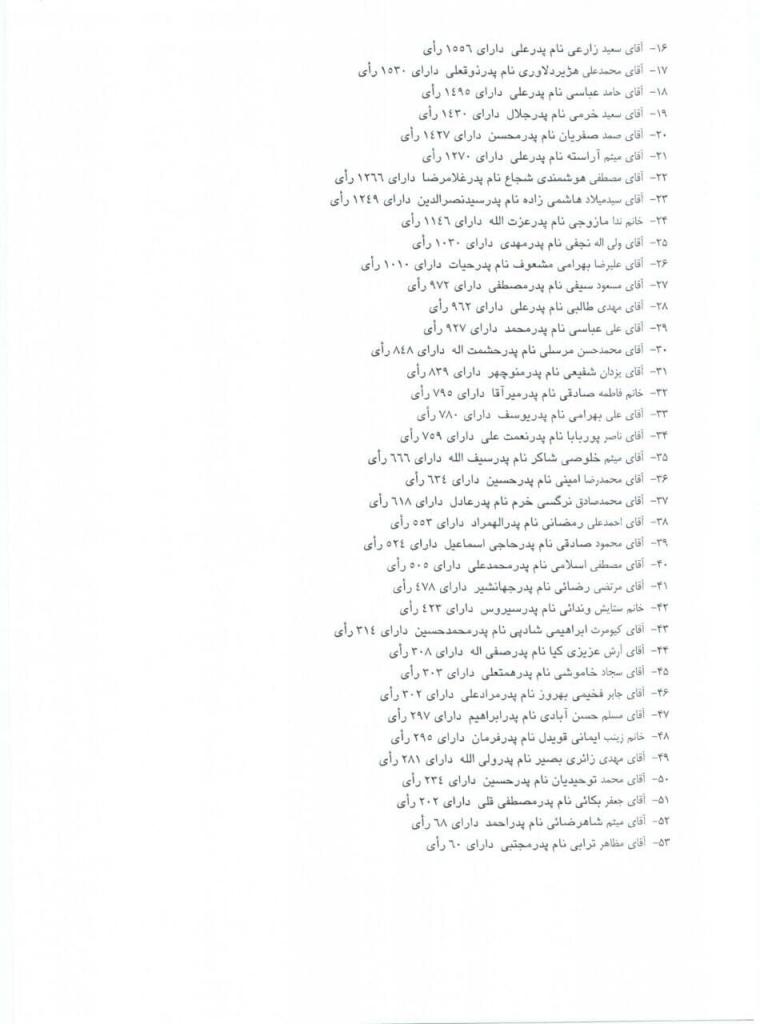 ۱۶- آقای سعید زارعی نام پدرعلی دارای ۱۵۵۶ رأی
۱۷- آقای محمدعلی هژبردلاوری نام پدرذوقعلی دارای ۱۵۳۰ رأی
۱۸- آقای حامد عباسی نام پدرعلی دارای ۱۴۹۵ رأی
۱۹- آقای سعید خرمی نام پدرجلال دارای ۱۴۳۰ رأی
۲۰- آقای صمد صفریان نام پدرمحسن دارای ۱۴۲۷ رأی
۲۱- آقای میثم آراسته نام پدرعلی دارای ۱۲۷۰ رأی
۲۲- آقای مصطفی هوشمندی شجاع نام پدرغلامرضا دارای ۱۲۶۶ رأی
۲۳- آقای سیدمیلاد هاشمی زاده نام پدرسیدنصرالدین دارای ۱۲۴۹ رأی
۲۴- خانم ندا مازوجی نام پدرعزت الله دارای ۱۱۴۶ رأی
۲۵- آقای ولی اله نجفی نام پدرمهدی دارای ۱۰۳۰ رأی
۲۶- آقای علیرضا بهرامی مشعوف نام پدرحیات دارای ۱۰۱۰ رأی
۲۷- آقای مسعود سیفی نام پدرمصطفی دارای ۹۷۲ رأی
۲۸- آقای مهدی طالبی نام پدرعلی دارای ۹۶۲ رأی
۲۹- آقای علی عباسی نام پدرمحمد دارای ۹۲۷ رأی
۳۰- آقای محمدحسن مرسلی نام پدرحشمت اله دارای ۸۴۸ رأی
۳۱- آقای یزدان شفیعی نام پدرمنوچهر دارای ۸۳۹ رأی
۳۲- خانم فاطمه صادقی نام پدرمیرآقا دارای ۷۹۵ رأی
۳۳- آقای علی بهرامی نام پدریوسف دارای ۷۸۰ رأی
۳۴- آقای ناصر پوربابا نام پدرنعمت علی دارای ۷۵۹ رأی
۳۵- آقای میثم خلوصی شاکر نام پدرسیف الله دارای ۶۶۶ رأی
۳۶- آقای محمدرضا امینی نام پدرحسین دارای ۶۳۴ رأی
۳۷- آقای محمدصادق نرگسی خرم نام پدرعادل دارای ۶۱۸ رأی
۳۸- آقای احمدعلی رمضانی نام پدرالهمراد دارای ۵۵۳ رأی
۳۹- آقای محمود صادقی نام پدرحاجی اسماعیل دارای ۵۲۴ رأی
۴۰- آقای مصطفی اسلامی نام پدرمحمدعلی دارای ۵۰۵ رأی
۴۱- آقای مرتضی رضائی نام پدرجهانشیر دارای ۴۷۸ رأی
۴۲- خانم ستایش وندائی نام پدرسیروس دارای ۴۲۳ رأی
۴۳- آقای کیومرث ابراهیمی شادپی نام پدرمحمدحسین دارای ۳۱۴ رأی
۴۴- آقای آرش عزیزی کیا نام پدرصفی اله دارای ۳۰۸ رأی
۴۵- آقای سجاد خاموشی نام پدرهمتعلی دارای ۳۰۳ رأی
۴۶- آقای جابر فخیمی بهروز نام پدرمرادعلی دارای ۳۰۲ رأی
۴۷- آقای مسلم حسن آبادی نام پدرابراهیم دارای ۲۹۷ رأی
۴۸- خانم زینب ایمانی قویدل نام پدرفرمان دارای ۲۹۵ رأی
۴۹- آقای مهدی زائری بصیر نام پدرولی الله دارای ۲۸۱ رأی
۵۰- آقای محمد توحیدیان نام پدرحسین دارای ۲۳۴ رأی
۵۱- آقای جعفر بکائی نام پدرمصطفی قلی دارای ۲۰۲ رأی
۵۲- آقای میثم شاهرضائی نام پدراحمد دارای ۶۸ رأی
۵۳- آقای مظاهر ترابی نام پدرمجتبی دارای ۶۰ رأی